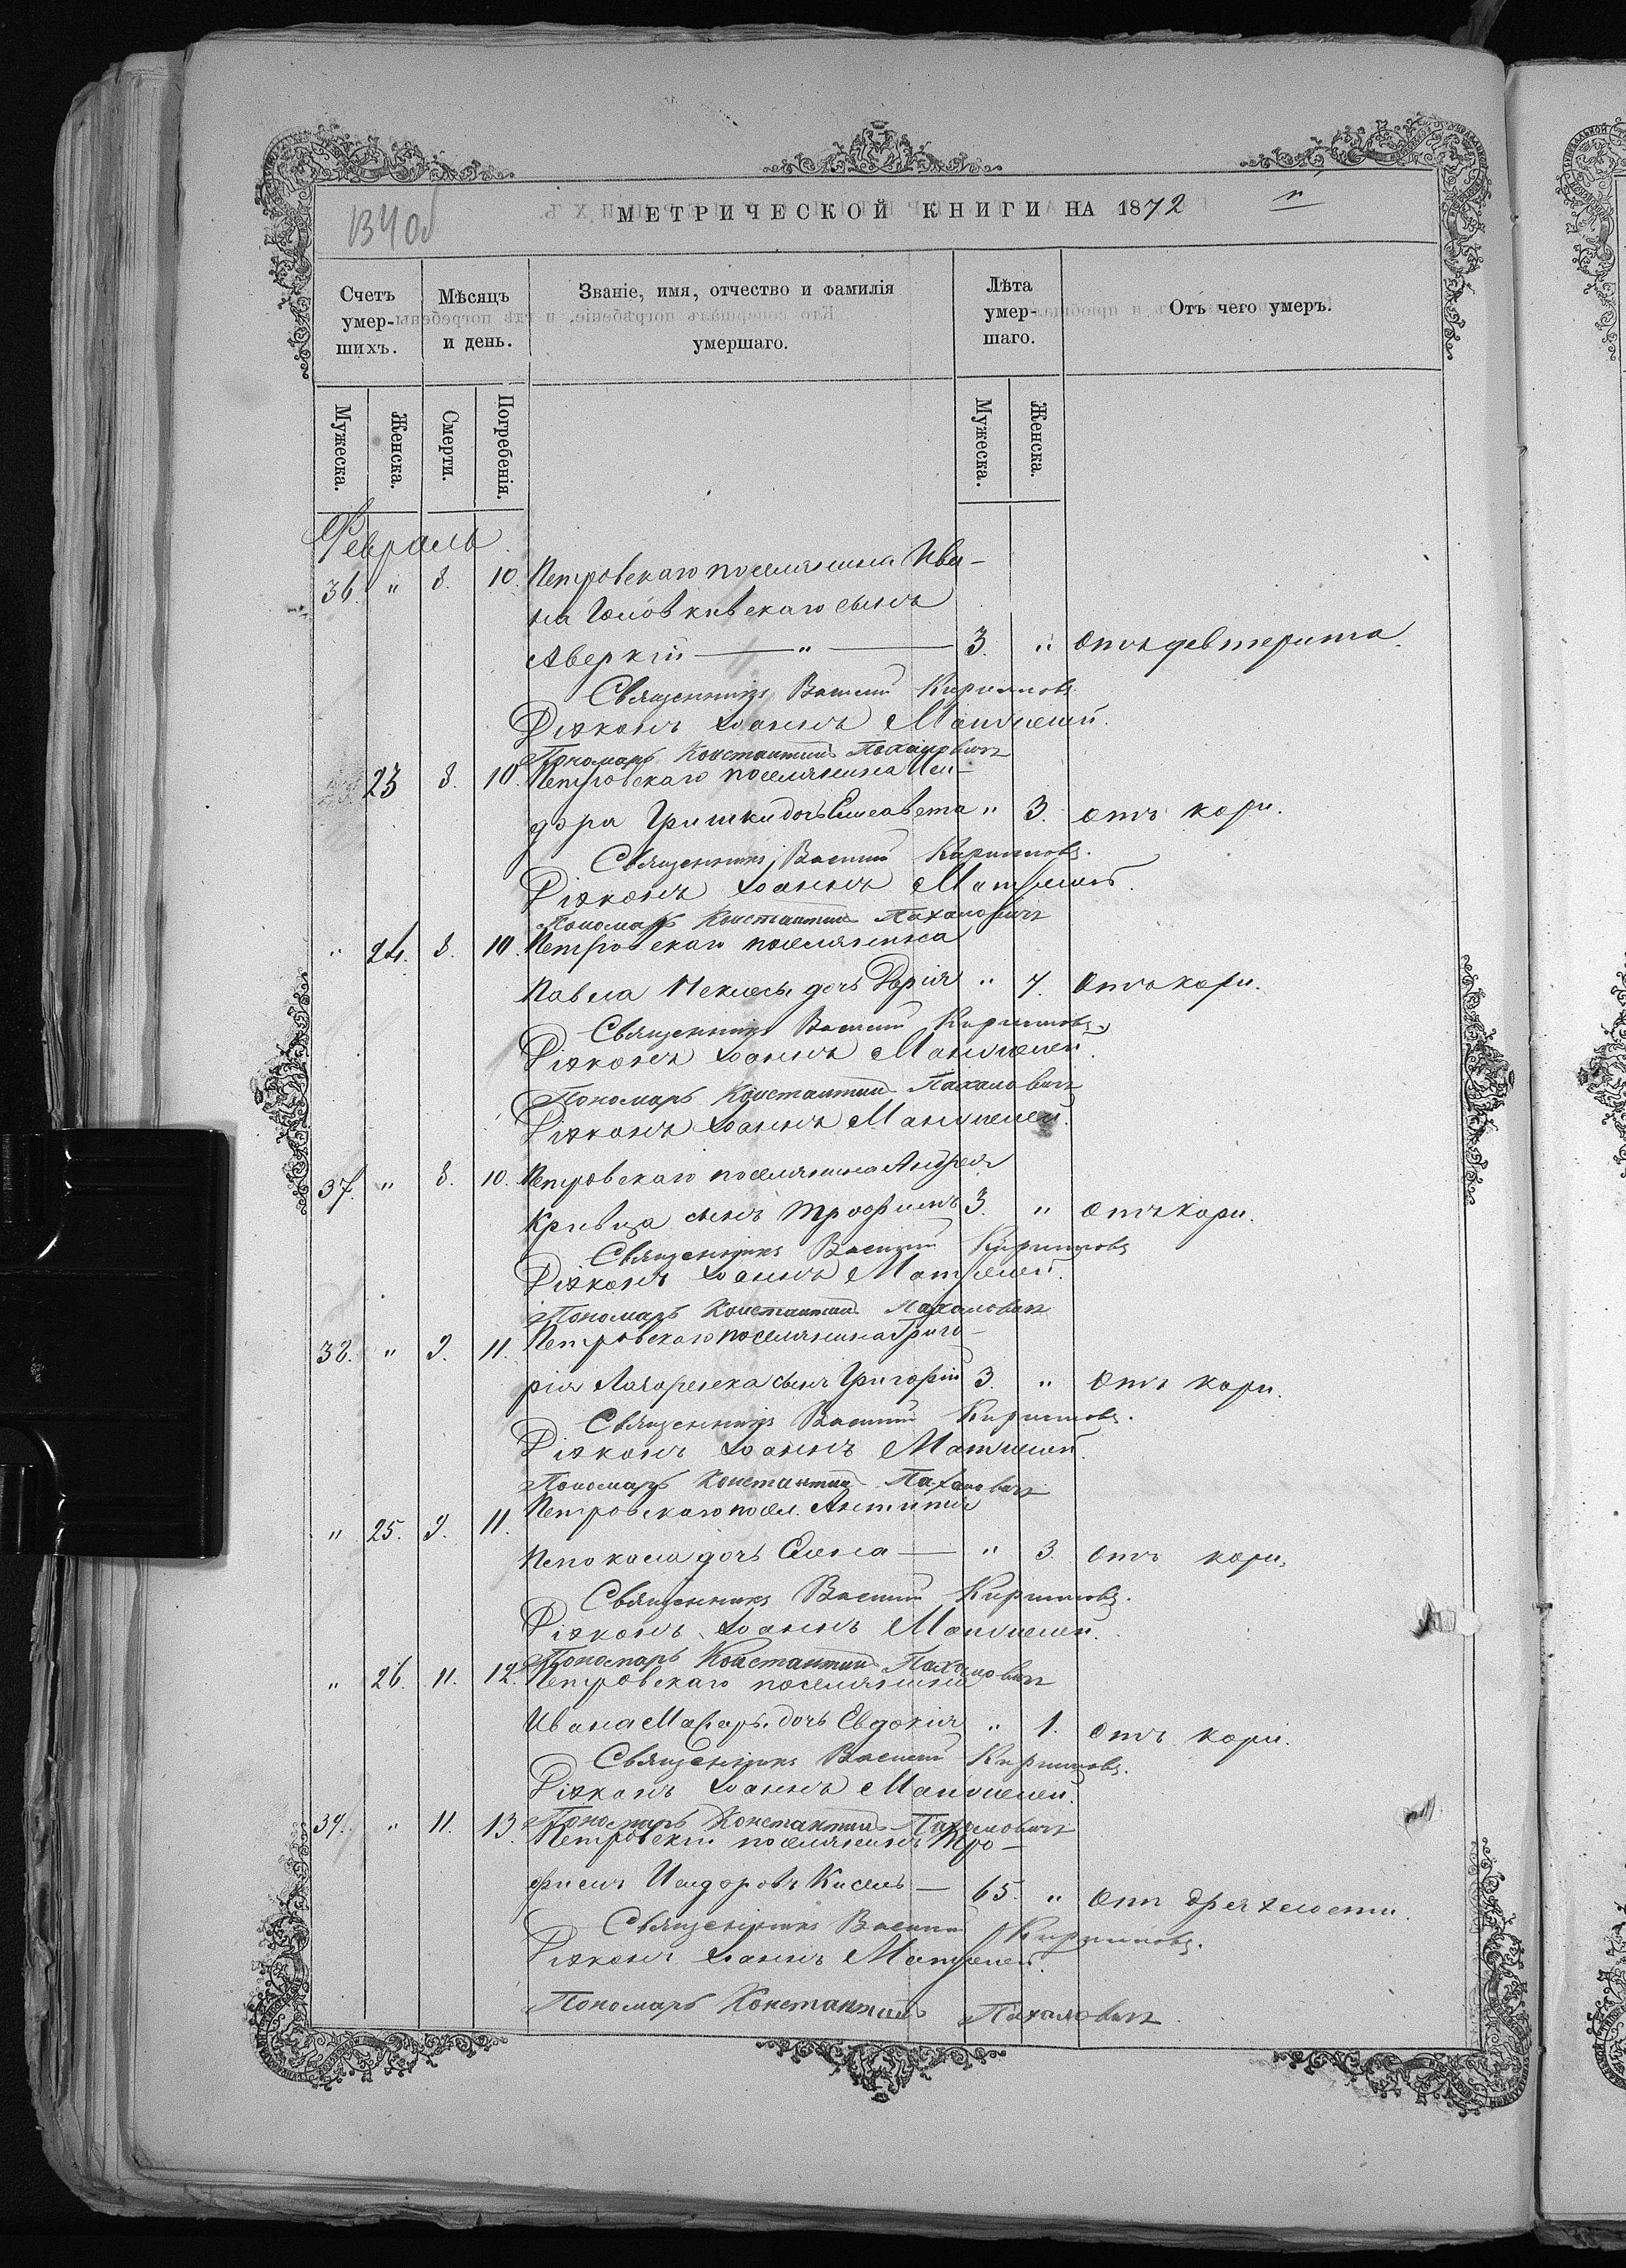 134об
МЕТРИЧЕСКОЙ КНИГИ НА 1872
Счетъ умер-шихъ. Мѣсяцъ и день. Званіе, имя, отчество и фамилія умершаго. Лѣта умер-шаго. Отъ чего умеръ.
Мужеска. Женска. Смерти. Погребенія. Мужеска. Женска.
Февраль.
36. " 8. 10. Петровскаго поселянина Ива-
на сынъ
Аверкій — " — 3. " Отъ девтерита.
Священникъ Василій
Діаконъ Іоаннъ
Пономарь Константинъ Пахаловичъ
23 8. 10. Петровскаго поселянина Иси-
дора Гришки дочь Елисавета " 3. отъ кори.
Священникъ Василій
Діаконъ Іоаннъ
Пономарь Константинъ Пахаловичъ
" 24. 8. 10. Петровскаго поселянина
Павла дочь Дарія " 7. Отъ кори.
Священникъ Василій
Діаконъ Іоаннъ
Пономарь Константинъ Пахаловичъ
Діаконъ Іоаннъ
37. " 8. 10. Петровскаго поселянина Андрея
Кривца сынъ Трофимъ 3. " Отъ кори.
Священникъ Василій
Діаконъ Іоаннъ
Пономарь Константинъ Пахаловичъ
38. " 9. 11. Петровскаго поселянина Григо-
рія сынъ Григорій 3. " Отъ кори.
Священникъ Василій
Діаконъ Іоаннъ
Пономарь Константинъ Пахаловичъ
" 25. 9. 11. Петровскаго посел. Антипія
дочь Елена — " 3. Отъ кори.
Священникъ Василій
Діаконъ Іоаннъ
Пономарь Константинъ Пахаловичъ
" 26. 11. 12. Петровскаго поселянина
Ивана дочь Евдокія " 1. Отъ кори.
Священникъ Василій
Діаконъ Іоаннъ
Пономарь Константинъ Пахаловичъ
39. " 11. 13. Петровскій поселянинъ Тро-
фимъ Исидоровъ Кисель — 65. " Отъ дряхлости.
Священникъ Василій
Діаконъ Іоаннъ
Пономарь Константинъ Пахаловичъ